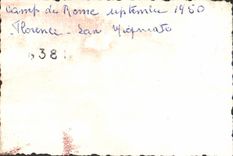 Camp de Rome septembre 1950
Florence - San Miniato
38